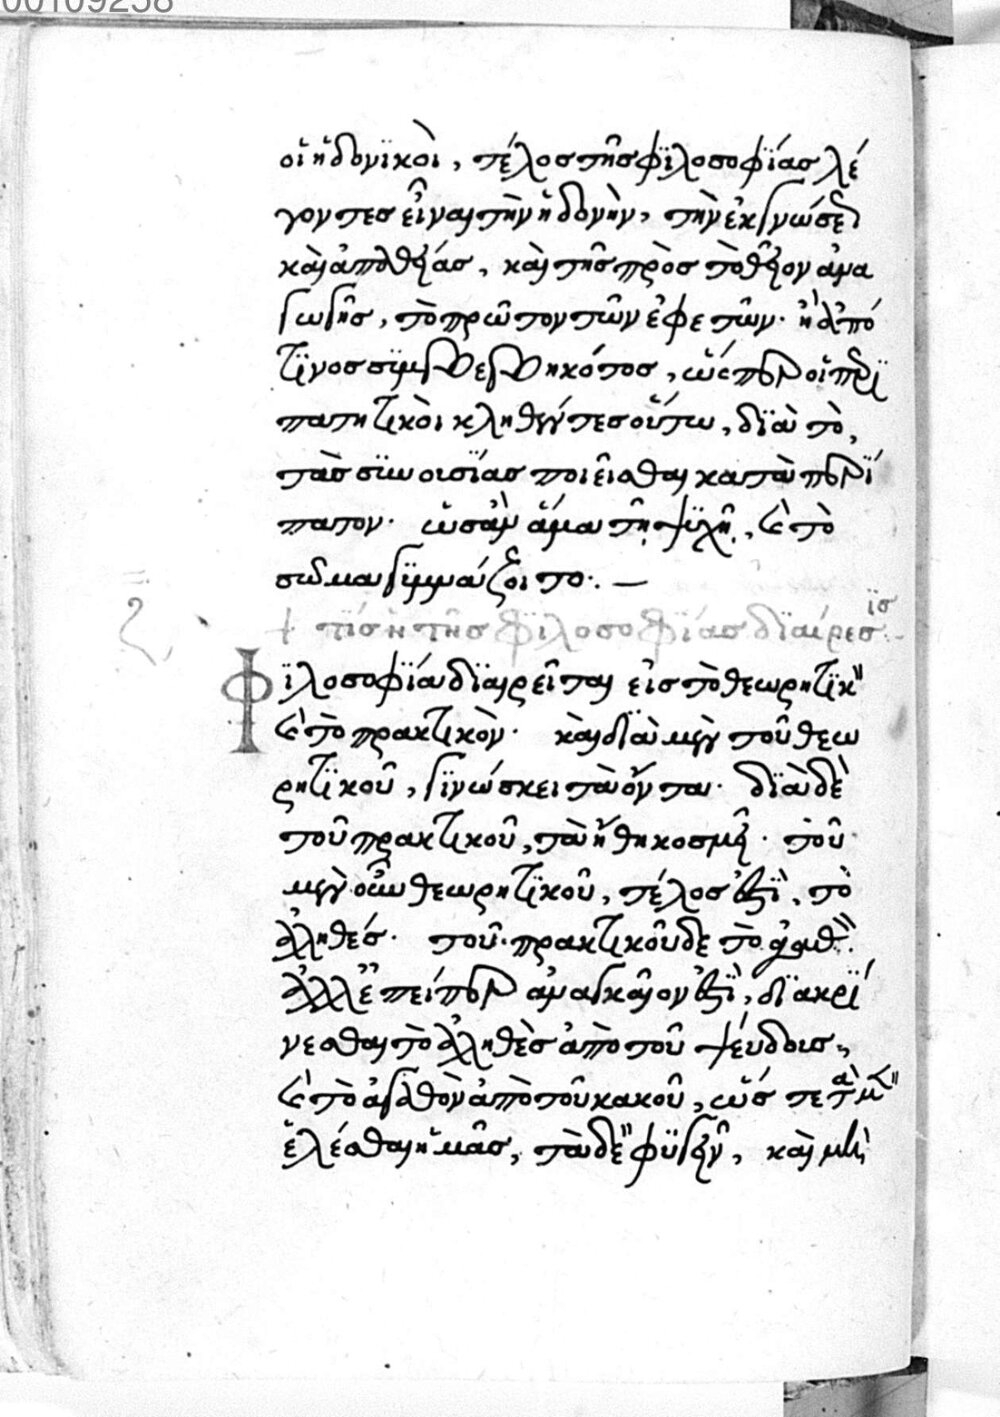 00109238
οἱ ἡδονϊκοὶ, τέλος τῆς φϊλοσοφΐας λέ
γοντες εἶναι τὴν ἡδονὴν, τὴν ἐκ γνώσεως
καὶ ἀπαθείας, καὶ τῆς πρὸς τὸ θεῖον ἀνα
γωγῆς, τὸ πρῶτον τῶν ἐφετῶν· ἢ ἀπό
τϊνος συμβεβηκότος, ὥσπερ οἱ περϊ
πατητικοὶ κληθέντες οὕτω, διὰ τὸ,
τὰς συνουσΐας ποιεῖσθαι κατὰ περΐ
πατον· ὡς ἂν ἅμα τῇ ψυχῇ, καὶ τὸ
σῶμα γυμνάζοιτο·. —
τΐς ἡ τῆς φϊλοσοφΐας διαίρεσϊς
ζ
Φϊλοσοφΐα διαιρεῖται εἰς τὸ θεωρητϊκὸν
καὶ τὸ πρακτικὸν· καὶ διὰ μὲν τοῦ θεω
ρητϊκοῦ, γϊνώσκει τὰ ὄντα· διὰ δὲ
τοῦ πρακτικοῦ, τὰ ἤθη κοσμεῖ· τοῦ
μὲν οὖν θεωρητϊκοῦ, τέλος ἐστϊ, τὸ
ἀληθές· τοῦ πρακτικοῦ δὲ τὸ ἀγαθὸν·
ἀλλ' ἐπείπερ ἀναγκαῖον ἐστϊ, διακρΐ
νεσθαι τὸ ἀληθὲς ἀπὸ τοῦ ψεύδους,
καὶ τὸ ἀγαθὸν ἀπὸ τοῦ κακοῦ, ὥστε τὰ μὲν
ἑλέσθαι ἡμᾶς, τὰ δὲ φυγεῖν, καὶ μὴ